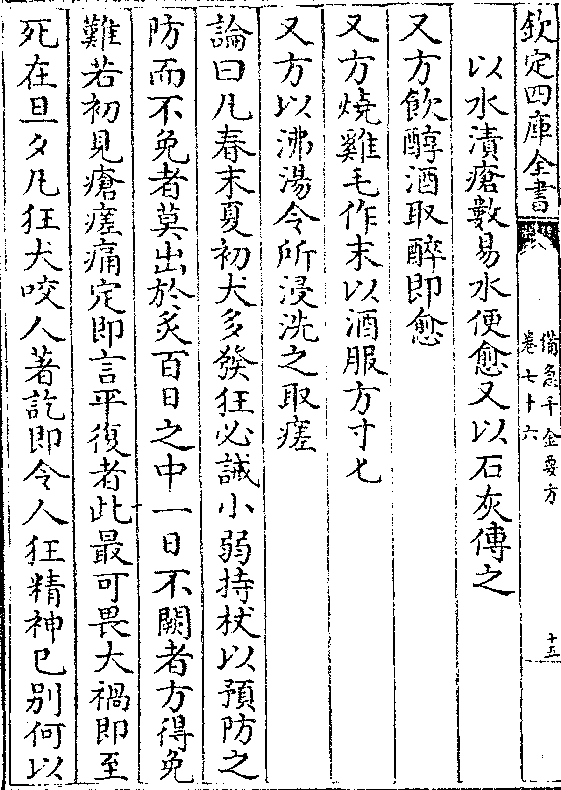 欽定四庫全書
備急千金要方
卷七十六
十五
以水漬瘡數易水便愈又以石灰傅之
又方飲醇酒取醉即愈
又方燒雞毛作末以酒服方寸匕
又方以沸湯令所浸洗之取瘥
論曰凡春末夏初犬多發狂必誡小弱持杖以預防之
防而不免者莫出於炙百日之中一日不闕者方得免
難若初見瘡瘥痛定即言平復者此最可畏大禍即至
死在旦夕凡狂犬咬人著訖即令人狂精神已别何以